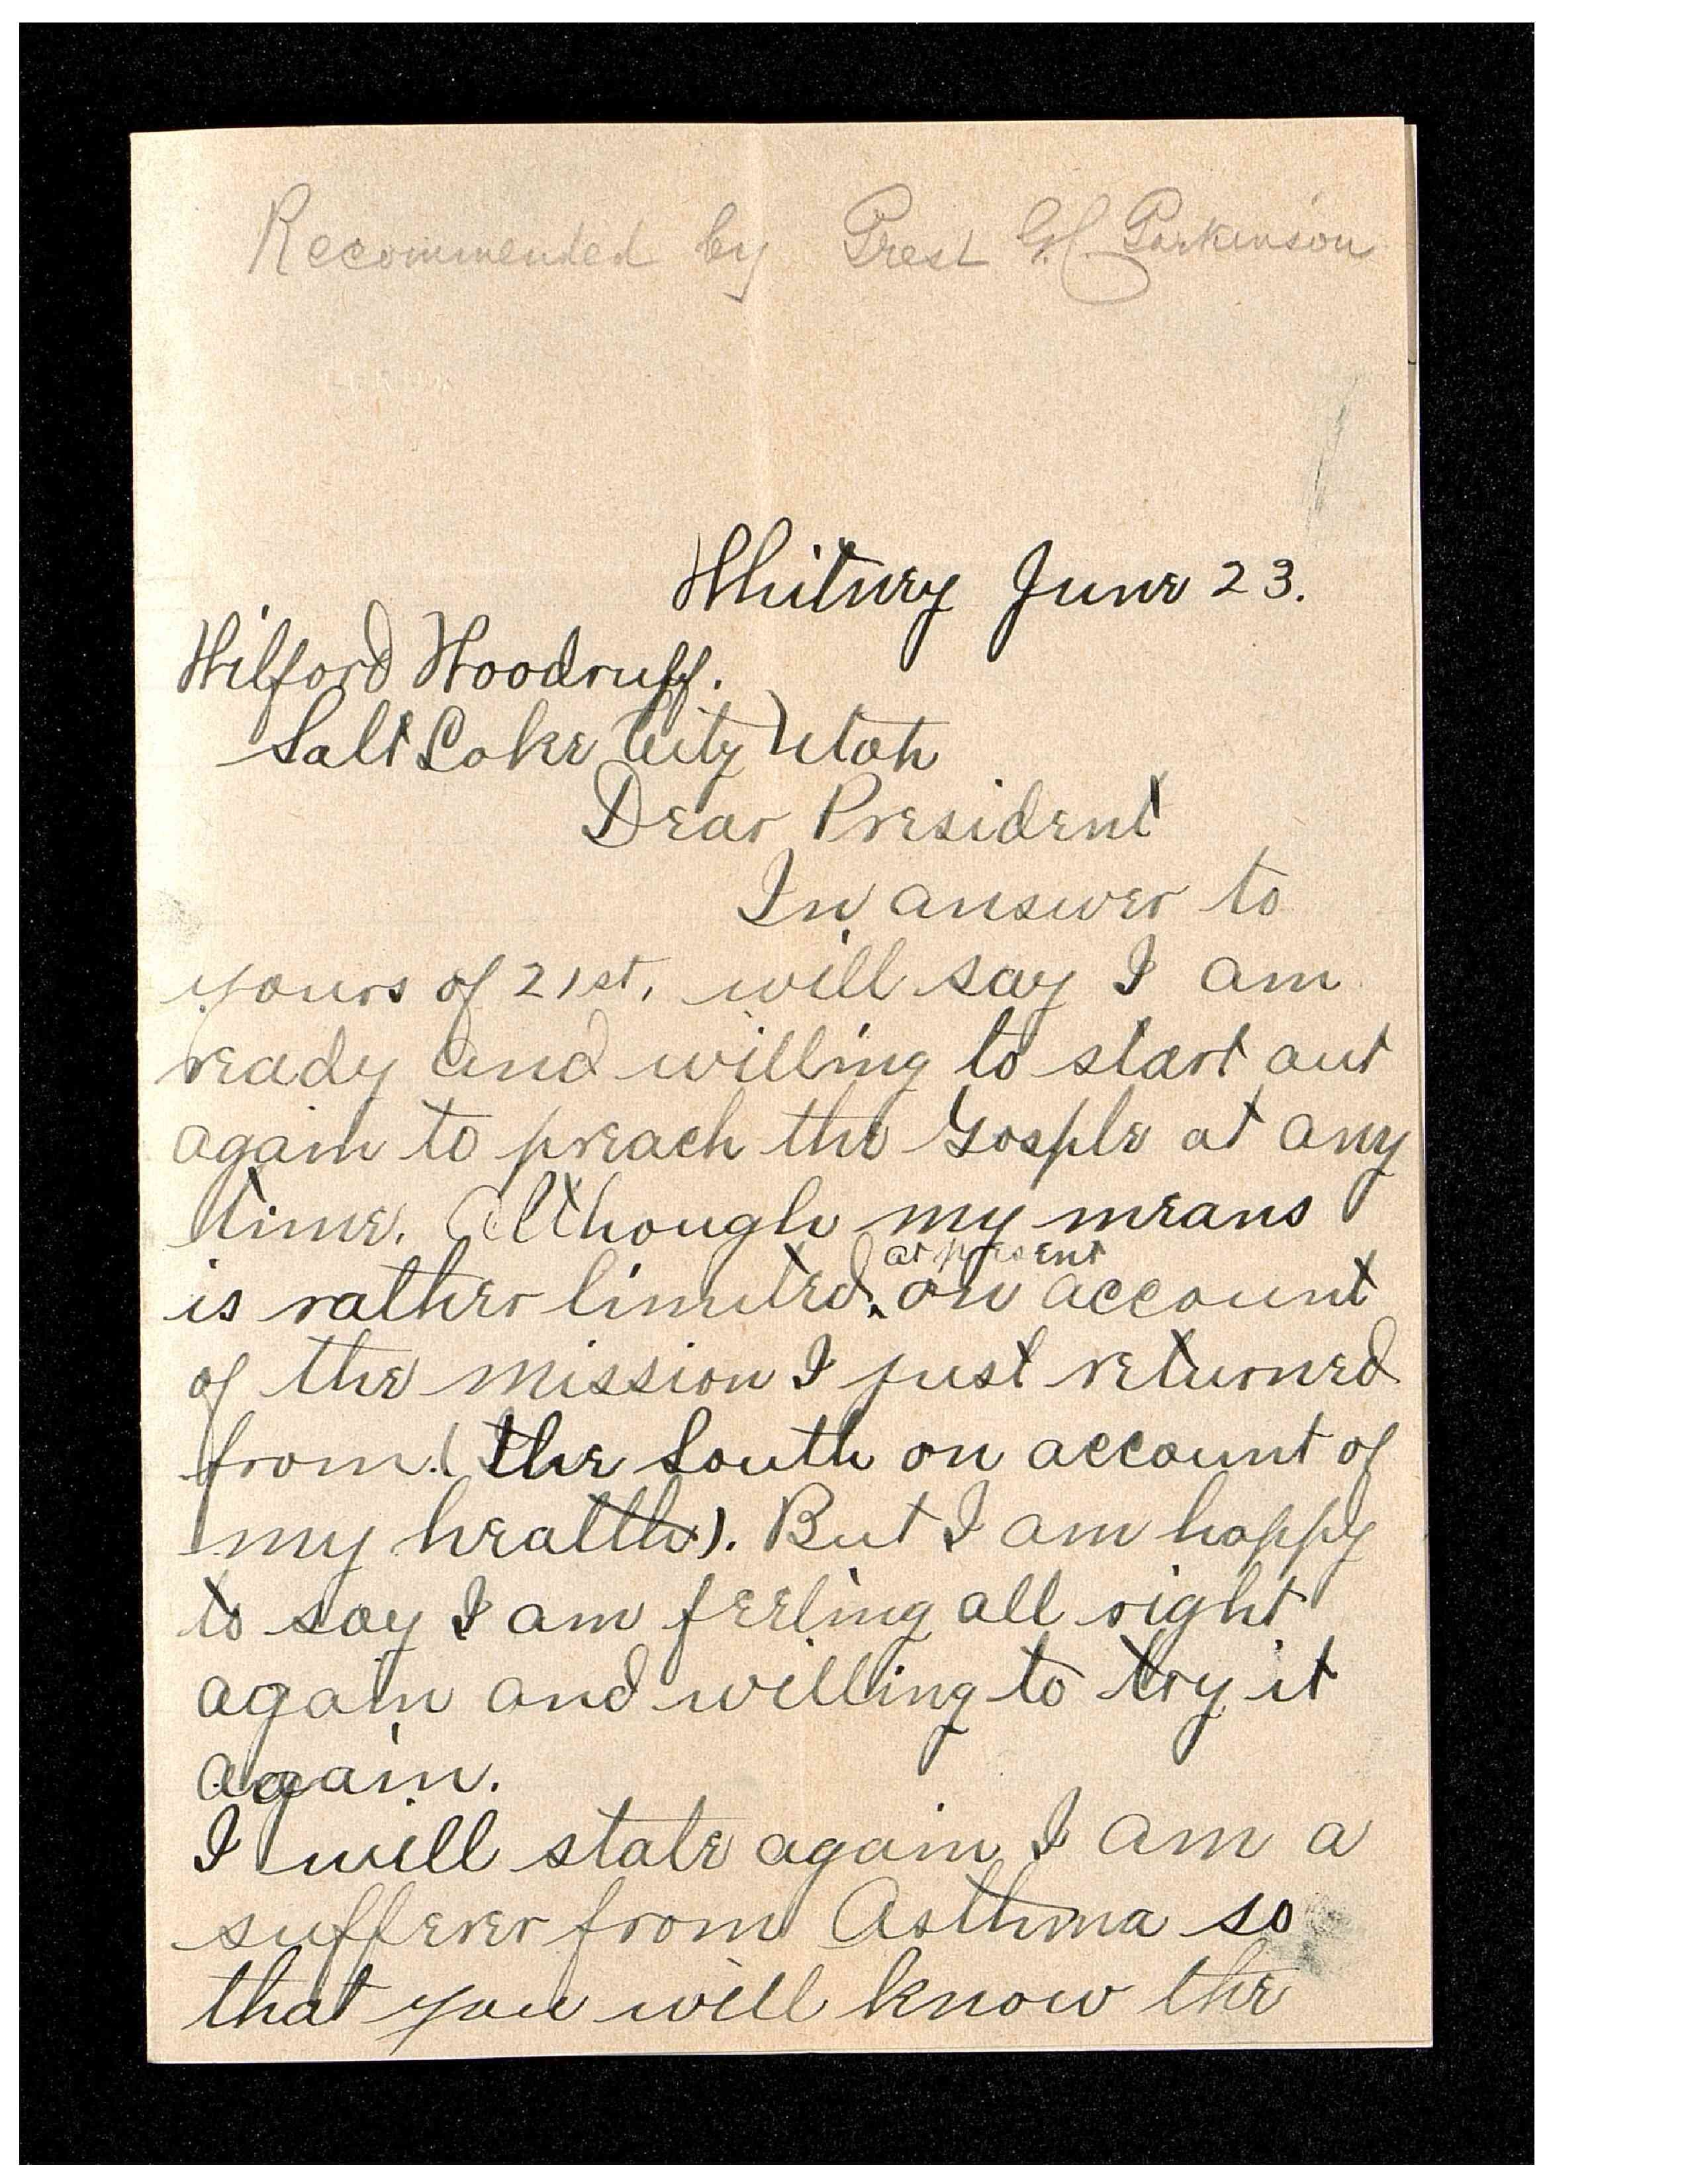 Recommended by Prest G.C. Parkinson
Whitney June 23.
Wilford Woodruff.
Salt Lake City Utah
Dear President
In answer to
yours of 21st, will say I am
ready and willing to start out
again to preach the Gosple at any
time. Although my means
at present
is rather limited. on account
of the mission I just returned
from. (the South on account of
my health). But I am happy
to say I am feeling all right
again and willing to try it
again.
I will state again I am a
sufferer from Asthma so
that you will know the